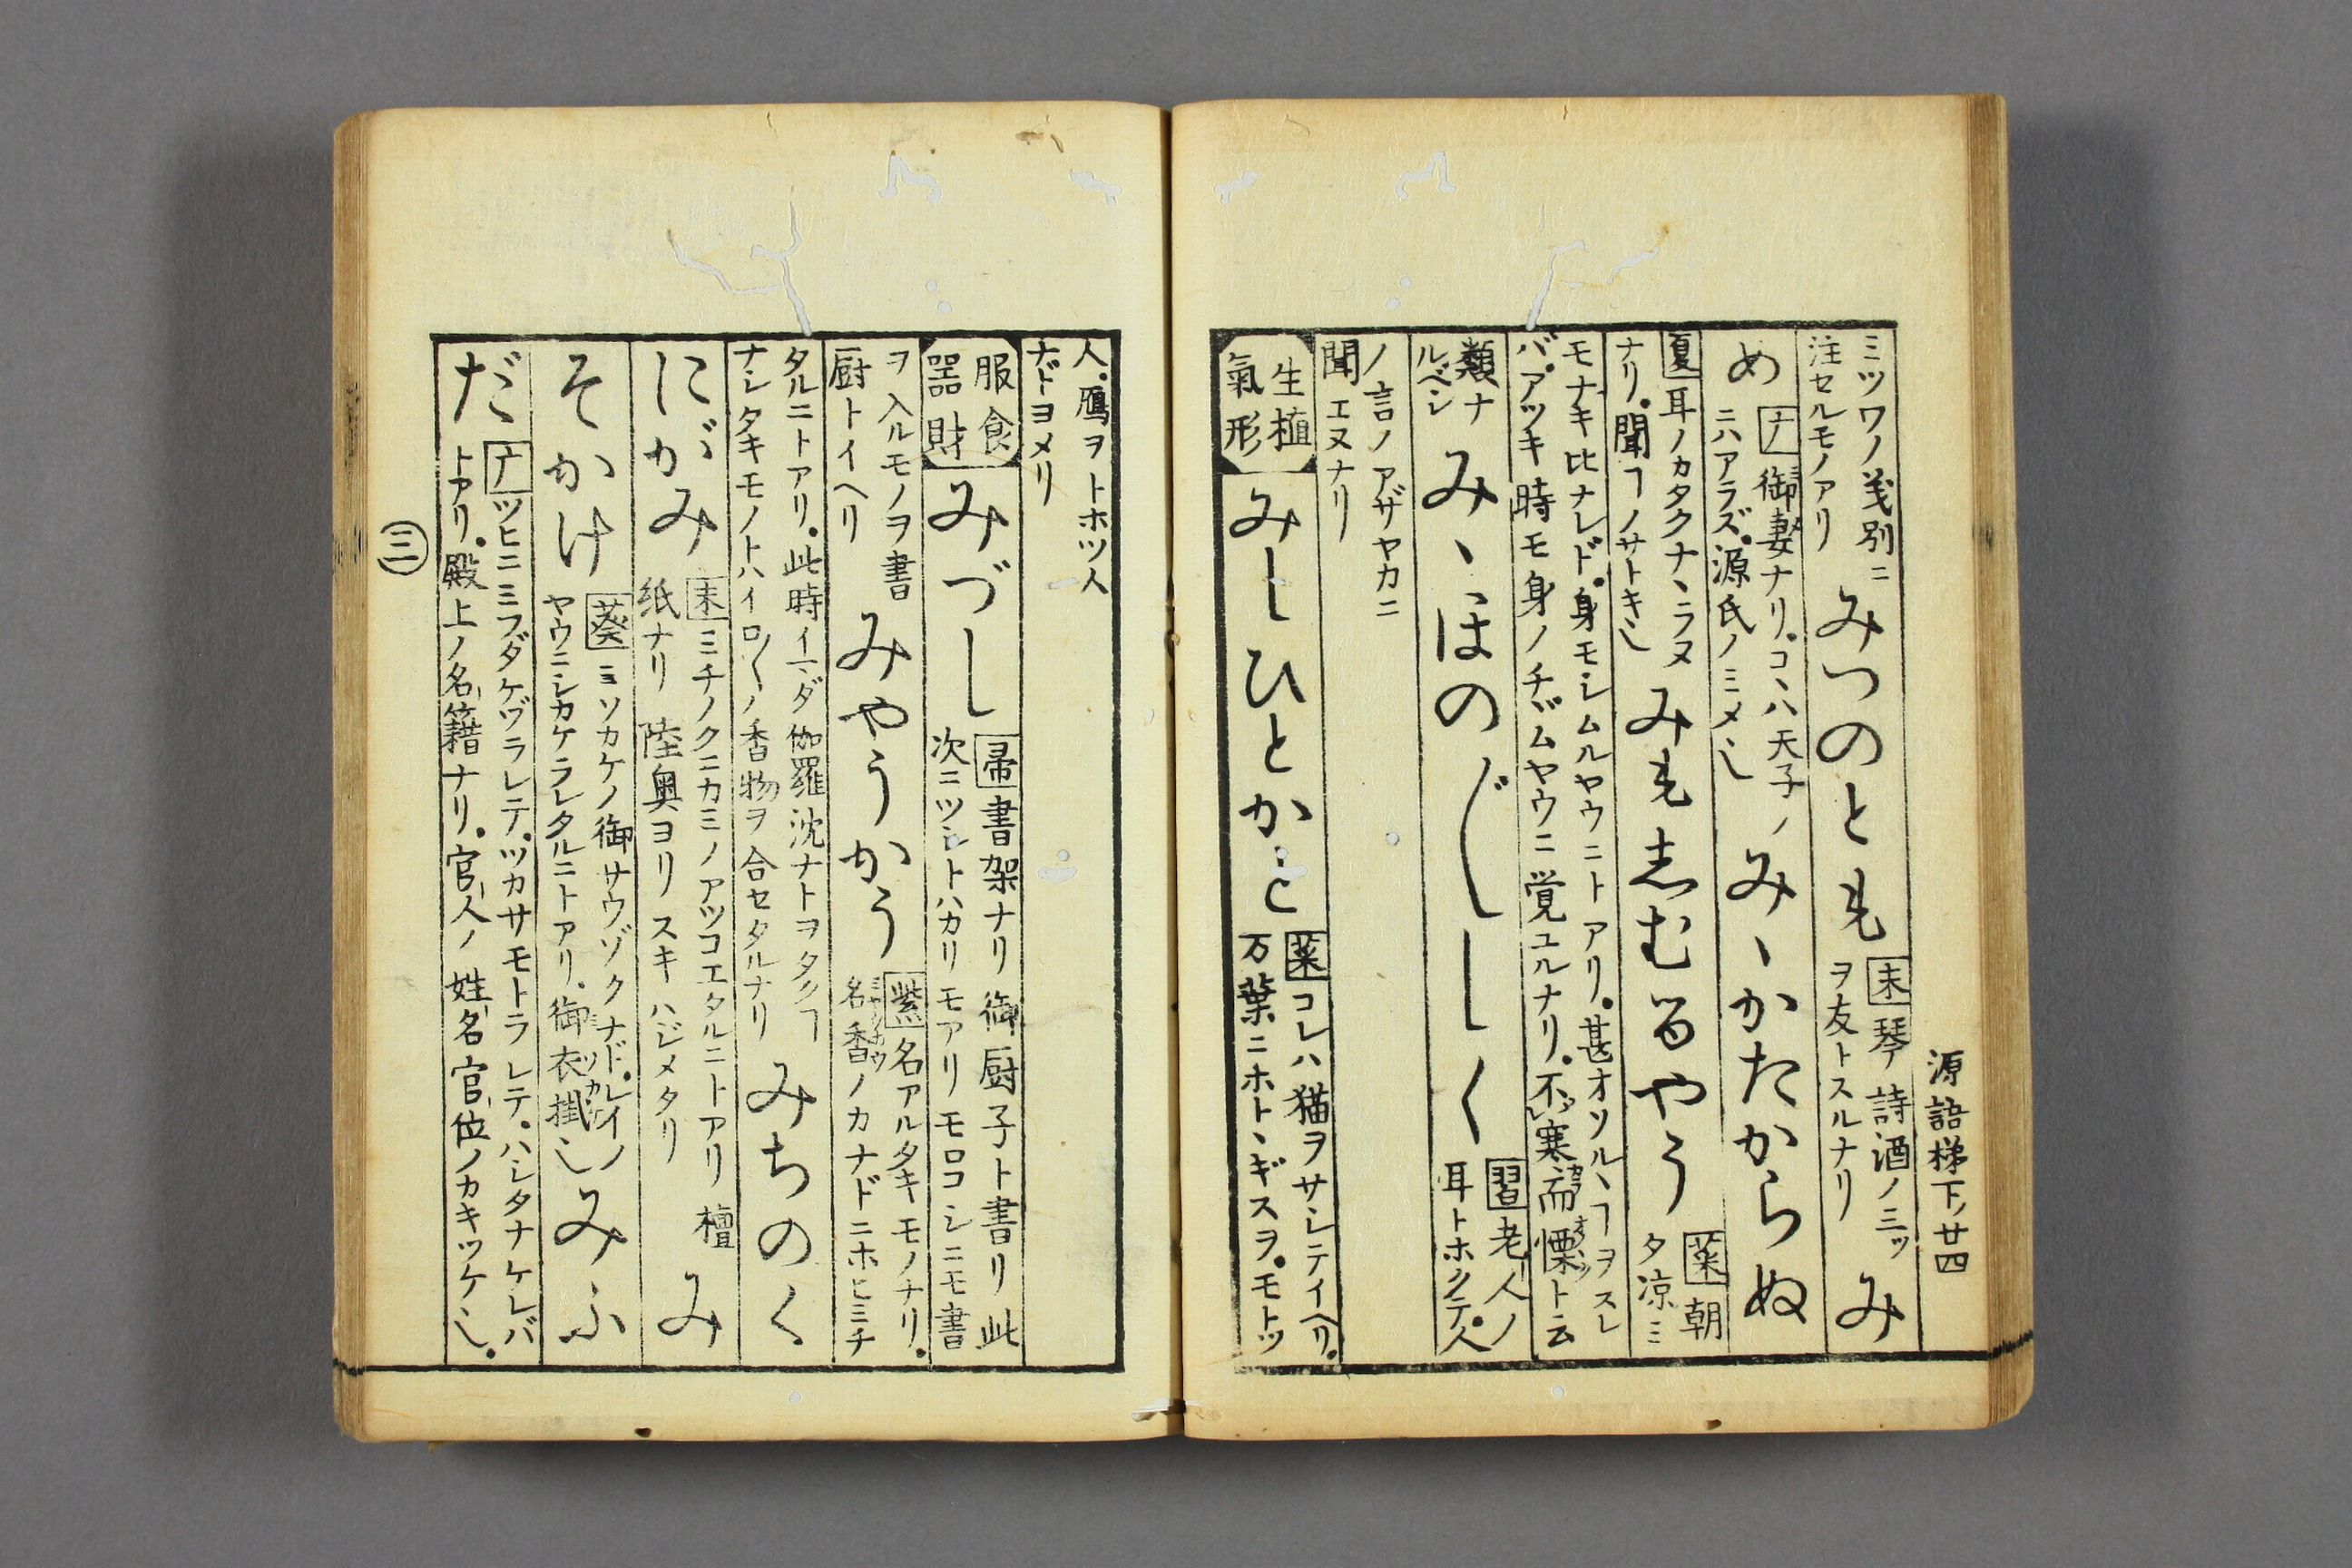 源語梯下ノ廿四
ミツワノ義別ニ
注セルモノアリ
みつのとも
末 琴詩酒ノ三ッ
ヲ友トスルナリ
み
め
ナノ 御妻ナリ。コヽハ天子ノ
ニハアラズ。源氏ノミメ也
みゝかたからぬ
夏 耳ノカタクナヽラヌ
ナリ。聞ヿノサトキ也
みもしむるやう
菜 朝
夕凉ミ
モナキ比ナレド。身モシムルヤウニトアリ。甚オソルヽヿヲスレ
バ。アツキ時モ身ノチヾムヤウニ覚ユルナリ。不寒而慄ト云
類ナ
ルベシ
みゝほの〴〵しく
習 老人ノ
耳トホクテ。人
ノ言ノアザヤカニ
聞エヌナリ
生植
氣形
みしひとかこと
菜 コレハ猫ヲサシテイヘリ。
万葉ニホトヽギスヲ。モトツ
人。鴈ヲトホツ人
ナドヨメリ
服食
器財
みづし
帚 書架ナリ御厨子ト書リ此
次ニツシトハカリモアリモロコシニモ書
ヲ入ルモノヲ書
厨トイヘリ
みやうかう
紫 名アルタキモノナリ。
名香ノカナドニホヒミチ
タルニトアリ。此時イマダ伽羅沈ナトヲタクヿ
ナシタキモノトハイロ〳〵ノ香物ヲ合セタルナリ
みちのく
にがみ
末 ミチノクニカミノアツコエタルニトアリ 檀
紙ナリ 陸奥ヨリスキハジメタリ
み
そかけ
葵 ミソカケノ御サウゾクナド。レイノ
ヤウニシカケラレタルニトアリ。御衣掛也
みふ
だ
ナノ ツヒニミフダケヅラレテ。ツカサモトラレテ。ハシタナケレバ
トアリ。殿上ノ名籍ナリ。官人ノ姓名官位ノカキツケ也。
三